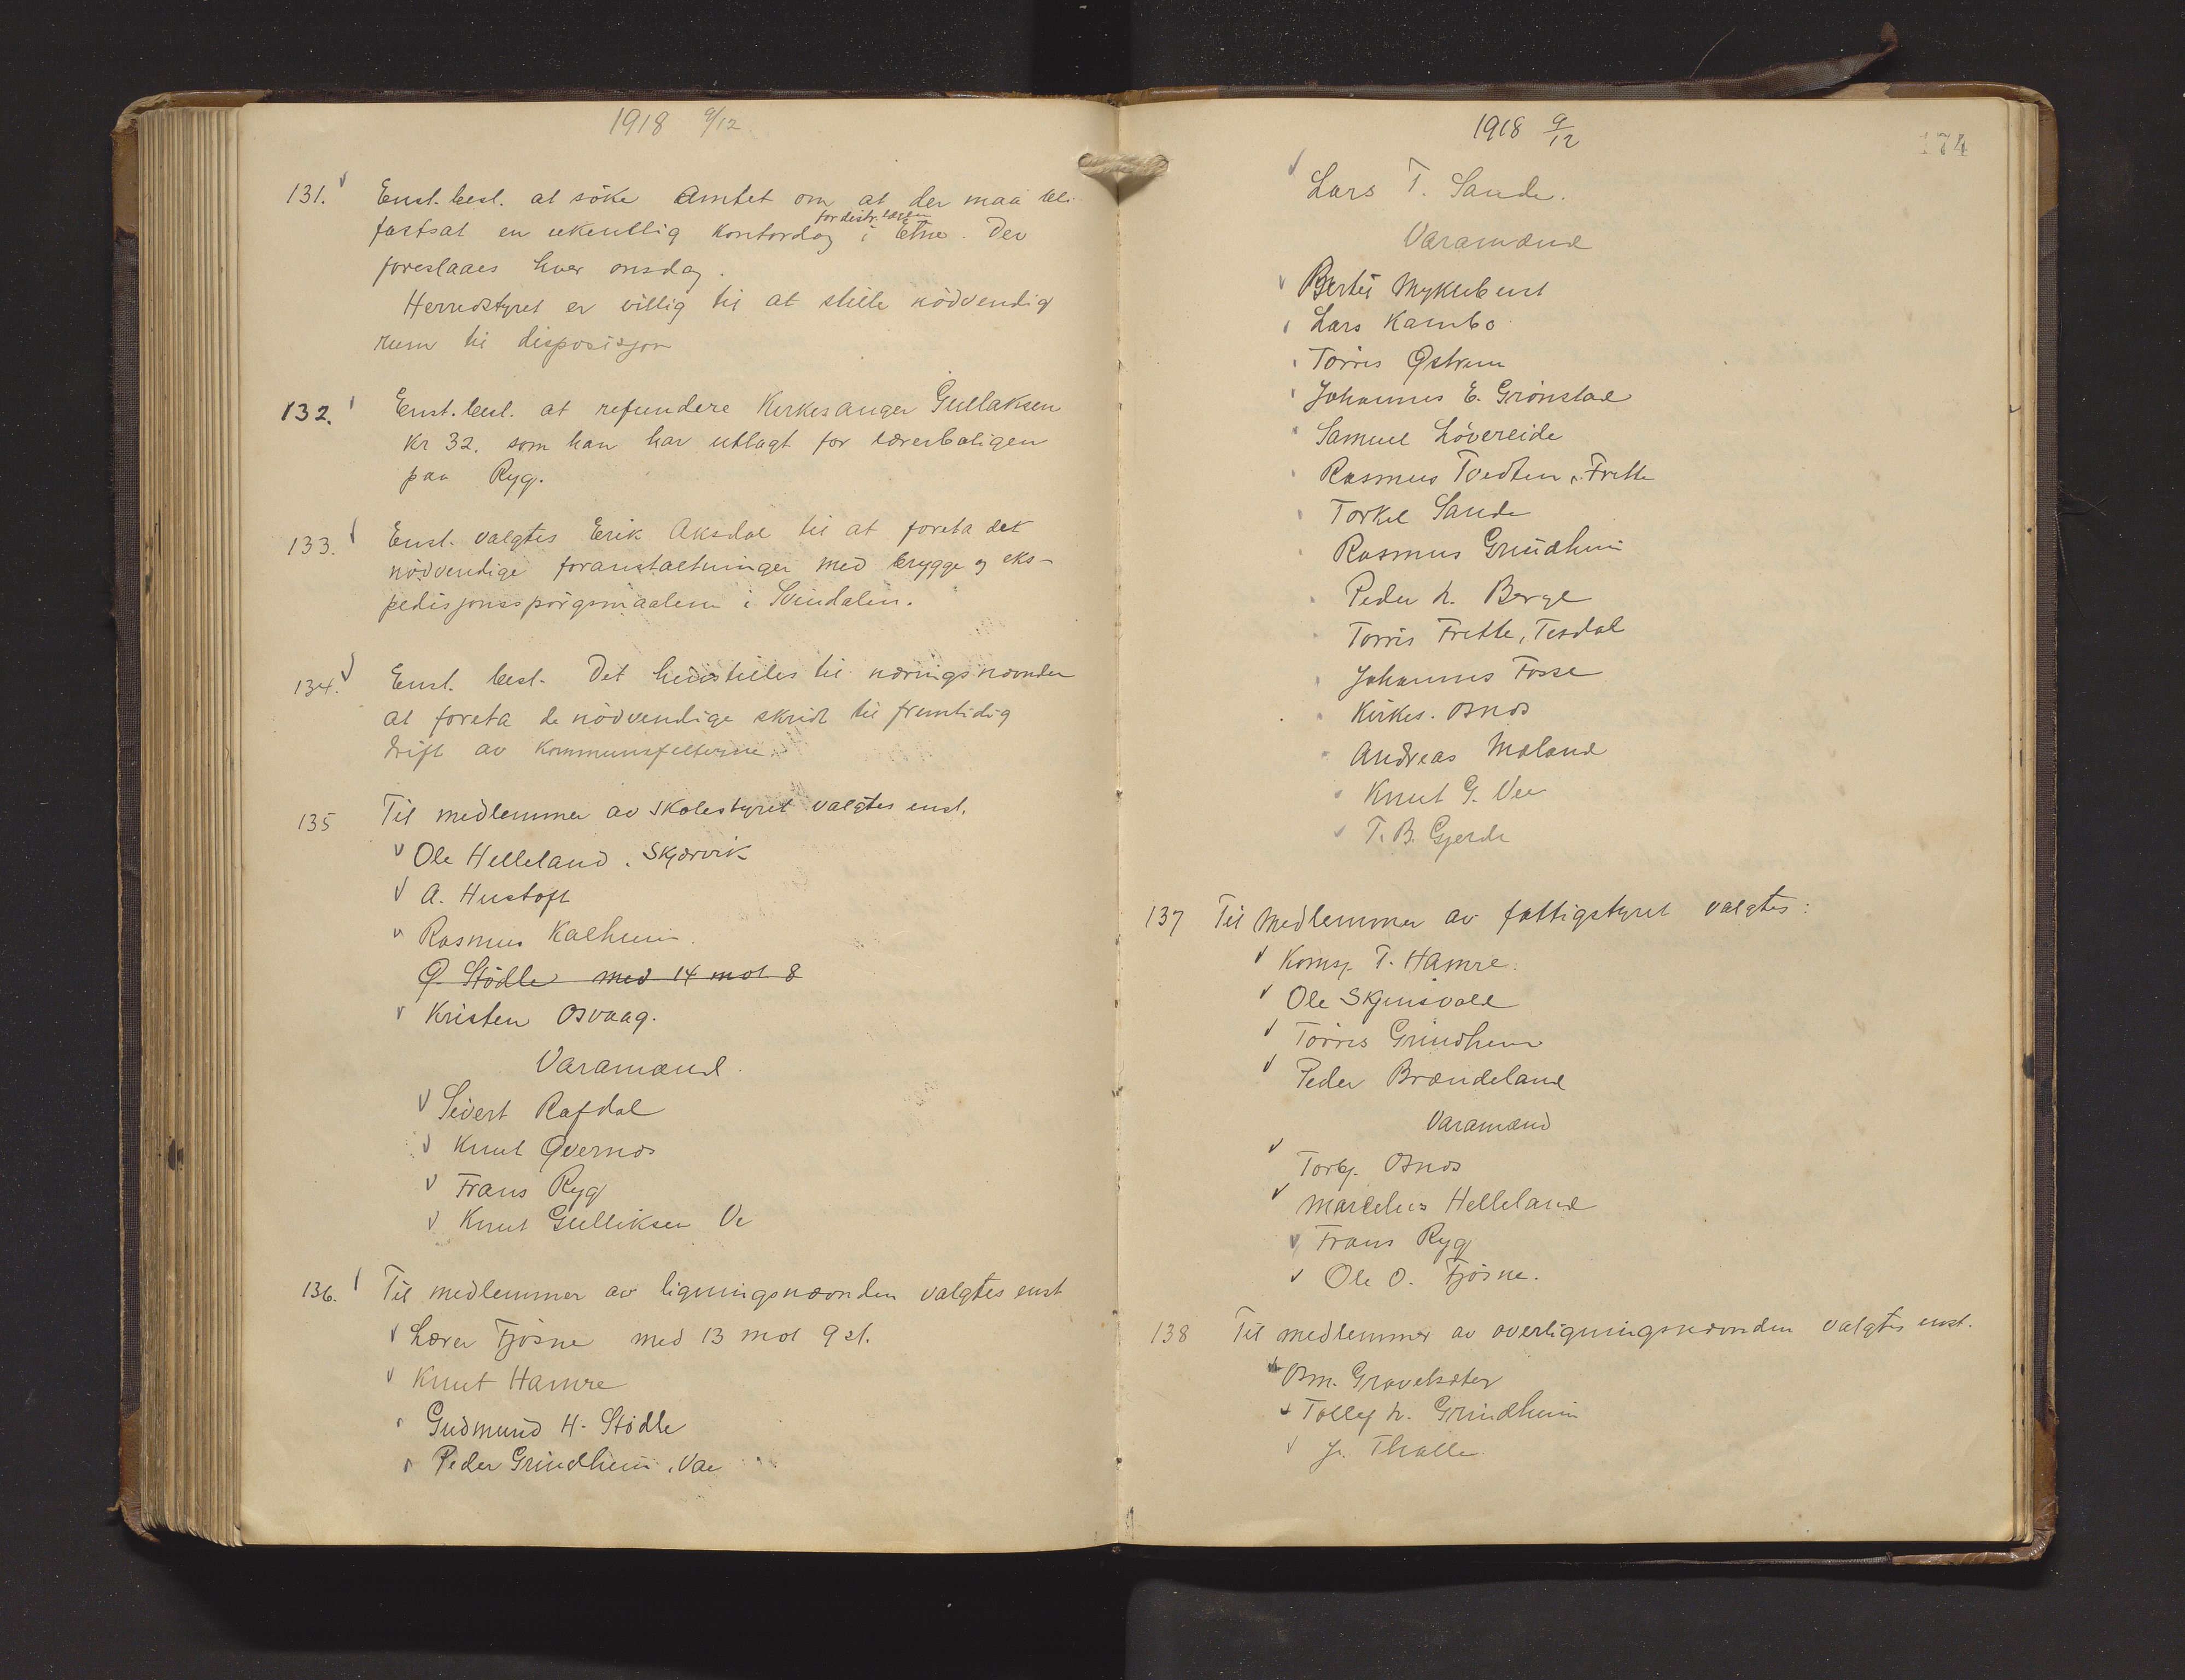 1918 9/12.
131. Enst. besl. at söke Amtet om at der maa bli
fastsat en ukentlig kontordag for distr. lægen i Etne. Der
foreslaaes hver onsdag.
Herredstyret er villig til at stille nödvendig
rum til disposisjon
132. Enst. besl. at refundere Kirkesanger Gullaksen
Kr 32. som han har utlagt for lærerboligen
paa Ryg.
133. Enst. valgtes Erik Aksdal til at foreta det
nödvendige foranstaltninger med brygge og eks-
pedisjonsspörgsmaalene i Svendalen.
134. Enst. besl. Det henstilles til næringsnævnden
at foreta de nödvendige skridt til fremtidig
drift av Kommunefelterne.
135 Til medlemmer av skolestyret valgtes enst.
Ole Helleland. Skjærvik
A. Hustoft
Rasmus Kalheim.
Q. Stödle med 14 mot 8
Kristen Osvaag.
Varamænd.
Sivert Rafdal
Knut Qvernæs
Frans Ryg
Knut Gulliksen Ve
136. Til medlemmer av ligningsnævnden valgtes enst
Lærer Fjösne med 13 mot 9 st.
Knut Hamre
Gudmund H. Stödle
Peder Grindheim, Vae
1918 9/12
174
Lars T. Sande.
Varamænd
Bertil Myklebust
Lars Kambo
Törres Östrem
Johannes E. Grönstad
Samuel Lövereide
Rasmus Tvedten, Frette
Torkel Sande
Rasmus Grindheim
Peder L. Berge
Torris Frette, Tesdal
Johannes Fosse
Kirkes. Osnes
Andreas Mæland
Knut G. Vee
T. B. Gjerde
137 Til medlemmer av fattigstyret valgtes:
Komsj. T. Hamre.
Ole Skjensvold
Törres Grindheim
Peder Brændeland
Varamænd
Torbj. Osnes
Marselius Helleland
Frans Ryg
Ole O. Fjösne.
138 Til medlemmer av overligningsnævnden valgtes enst.
Om. Gravelsæter
Tollef L. Grindheim
Jr. Thalle.